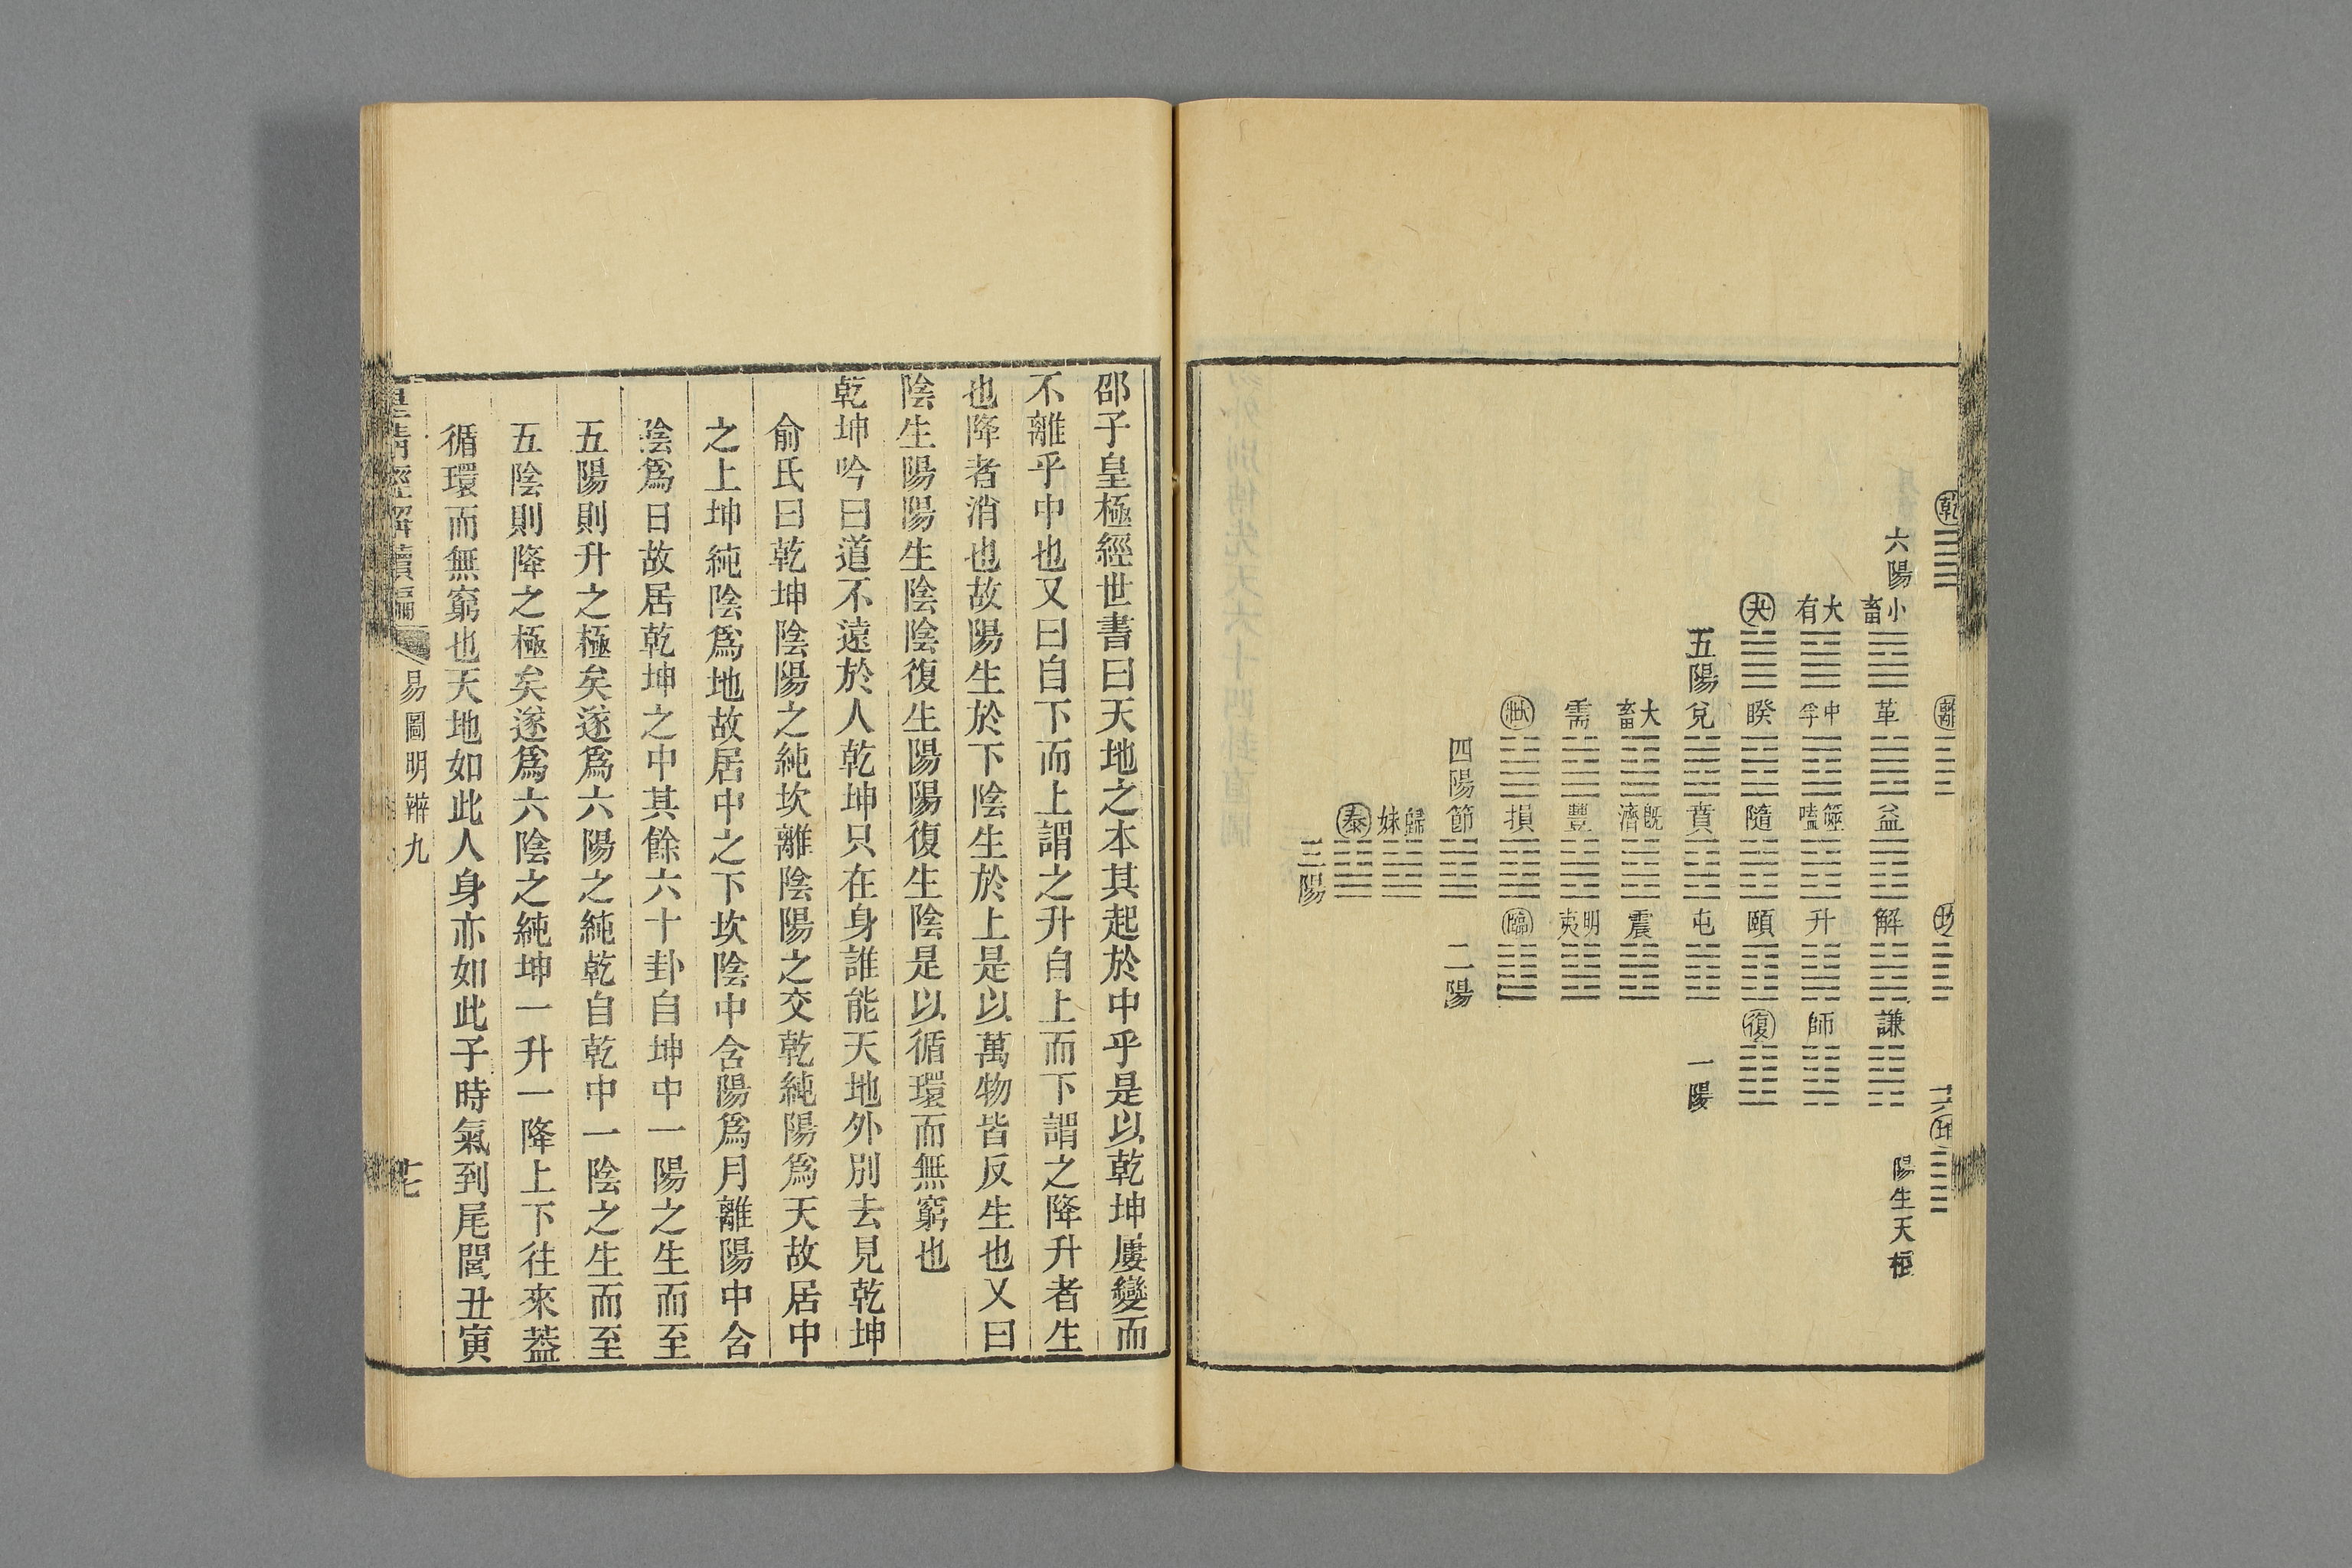 乾
六陽
小畜 大有 夬
五陽
離
革 中孚 睽 兌 大畜 需 壯
四陽
益 噬嗑 隨 賁 既濟 豐 損 節 歸妹 泰
三陽
坎
解 升 頤 屯 震 明夷 臨
二陽
謙 師 復
一陽
坤
陽生天根
邵子皇極經世書曰天地之本其起於中乎是以乾坤屢變而
不離乎中也又曰自下而上謂之升自上而下謂之降升者生
也降者消也故陽生於下陰生於上是以萬物皆反生也又曰
陰生陽陽生陰陰復生陽陽復生陰是以循環而無窮也
乾坤吟曰道不遠於人乾坤只在身誰能天地外別去見乾坤
俞氏曰乾坤陰陽之純坎離陰陽之交乾純陽爲天故居中
之上坤純陰爲地故居中之下坎陰中含陽爲月離陽中含
陰爲日故居乾坤之中其餘六十卦自坤中一陽之生而至
五陽則升之極矣遂爲六陽之純乾自乾中一陰之生而至
五陰則降之極矣遂爲六陰之純坤一升一降上下往來葢
循環而無窮也天地如此人身亦如此子時氣到尾閭丑寅
皇清經解續編 易圖明辨九 十七